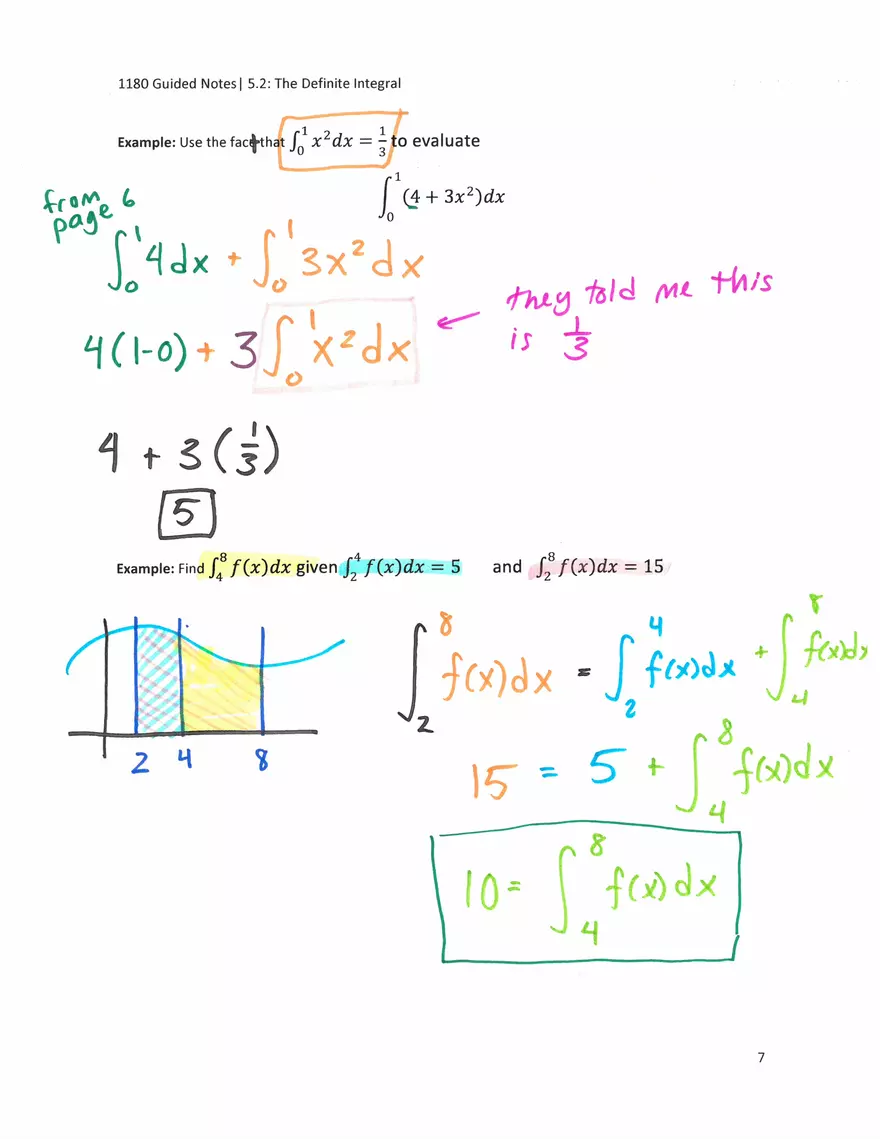 1180 Guided Notes| 5.2: The Definite Integral
Example: Use the fact that ∫₀¹ x²dx = 1/3 to evaluate
∫₀¹ (4 + 3x²)dx
from page 6
∫₀¹ 4dx + ∫₀¹ 3x²dx
4(1-0) + 3 ∫₀¹ x²dx ← they told me this is 1/3
4 + 3(1/3)
5
Example: Find ∫₄⁸ f(x)dx given ∫₂⁴ f(x)dx = 5 and ∫₂⁸ f(x)dx = 15
∫₂⁸ f(x)dx = ∫₂⁴ f(x)dx + ∫₄⁸ f(x)dx
2 4 8
15 = 5 + ∫₄⁸ f(x)dx
10 = ∫₄⁸ f(x)dx
7